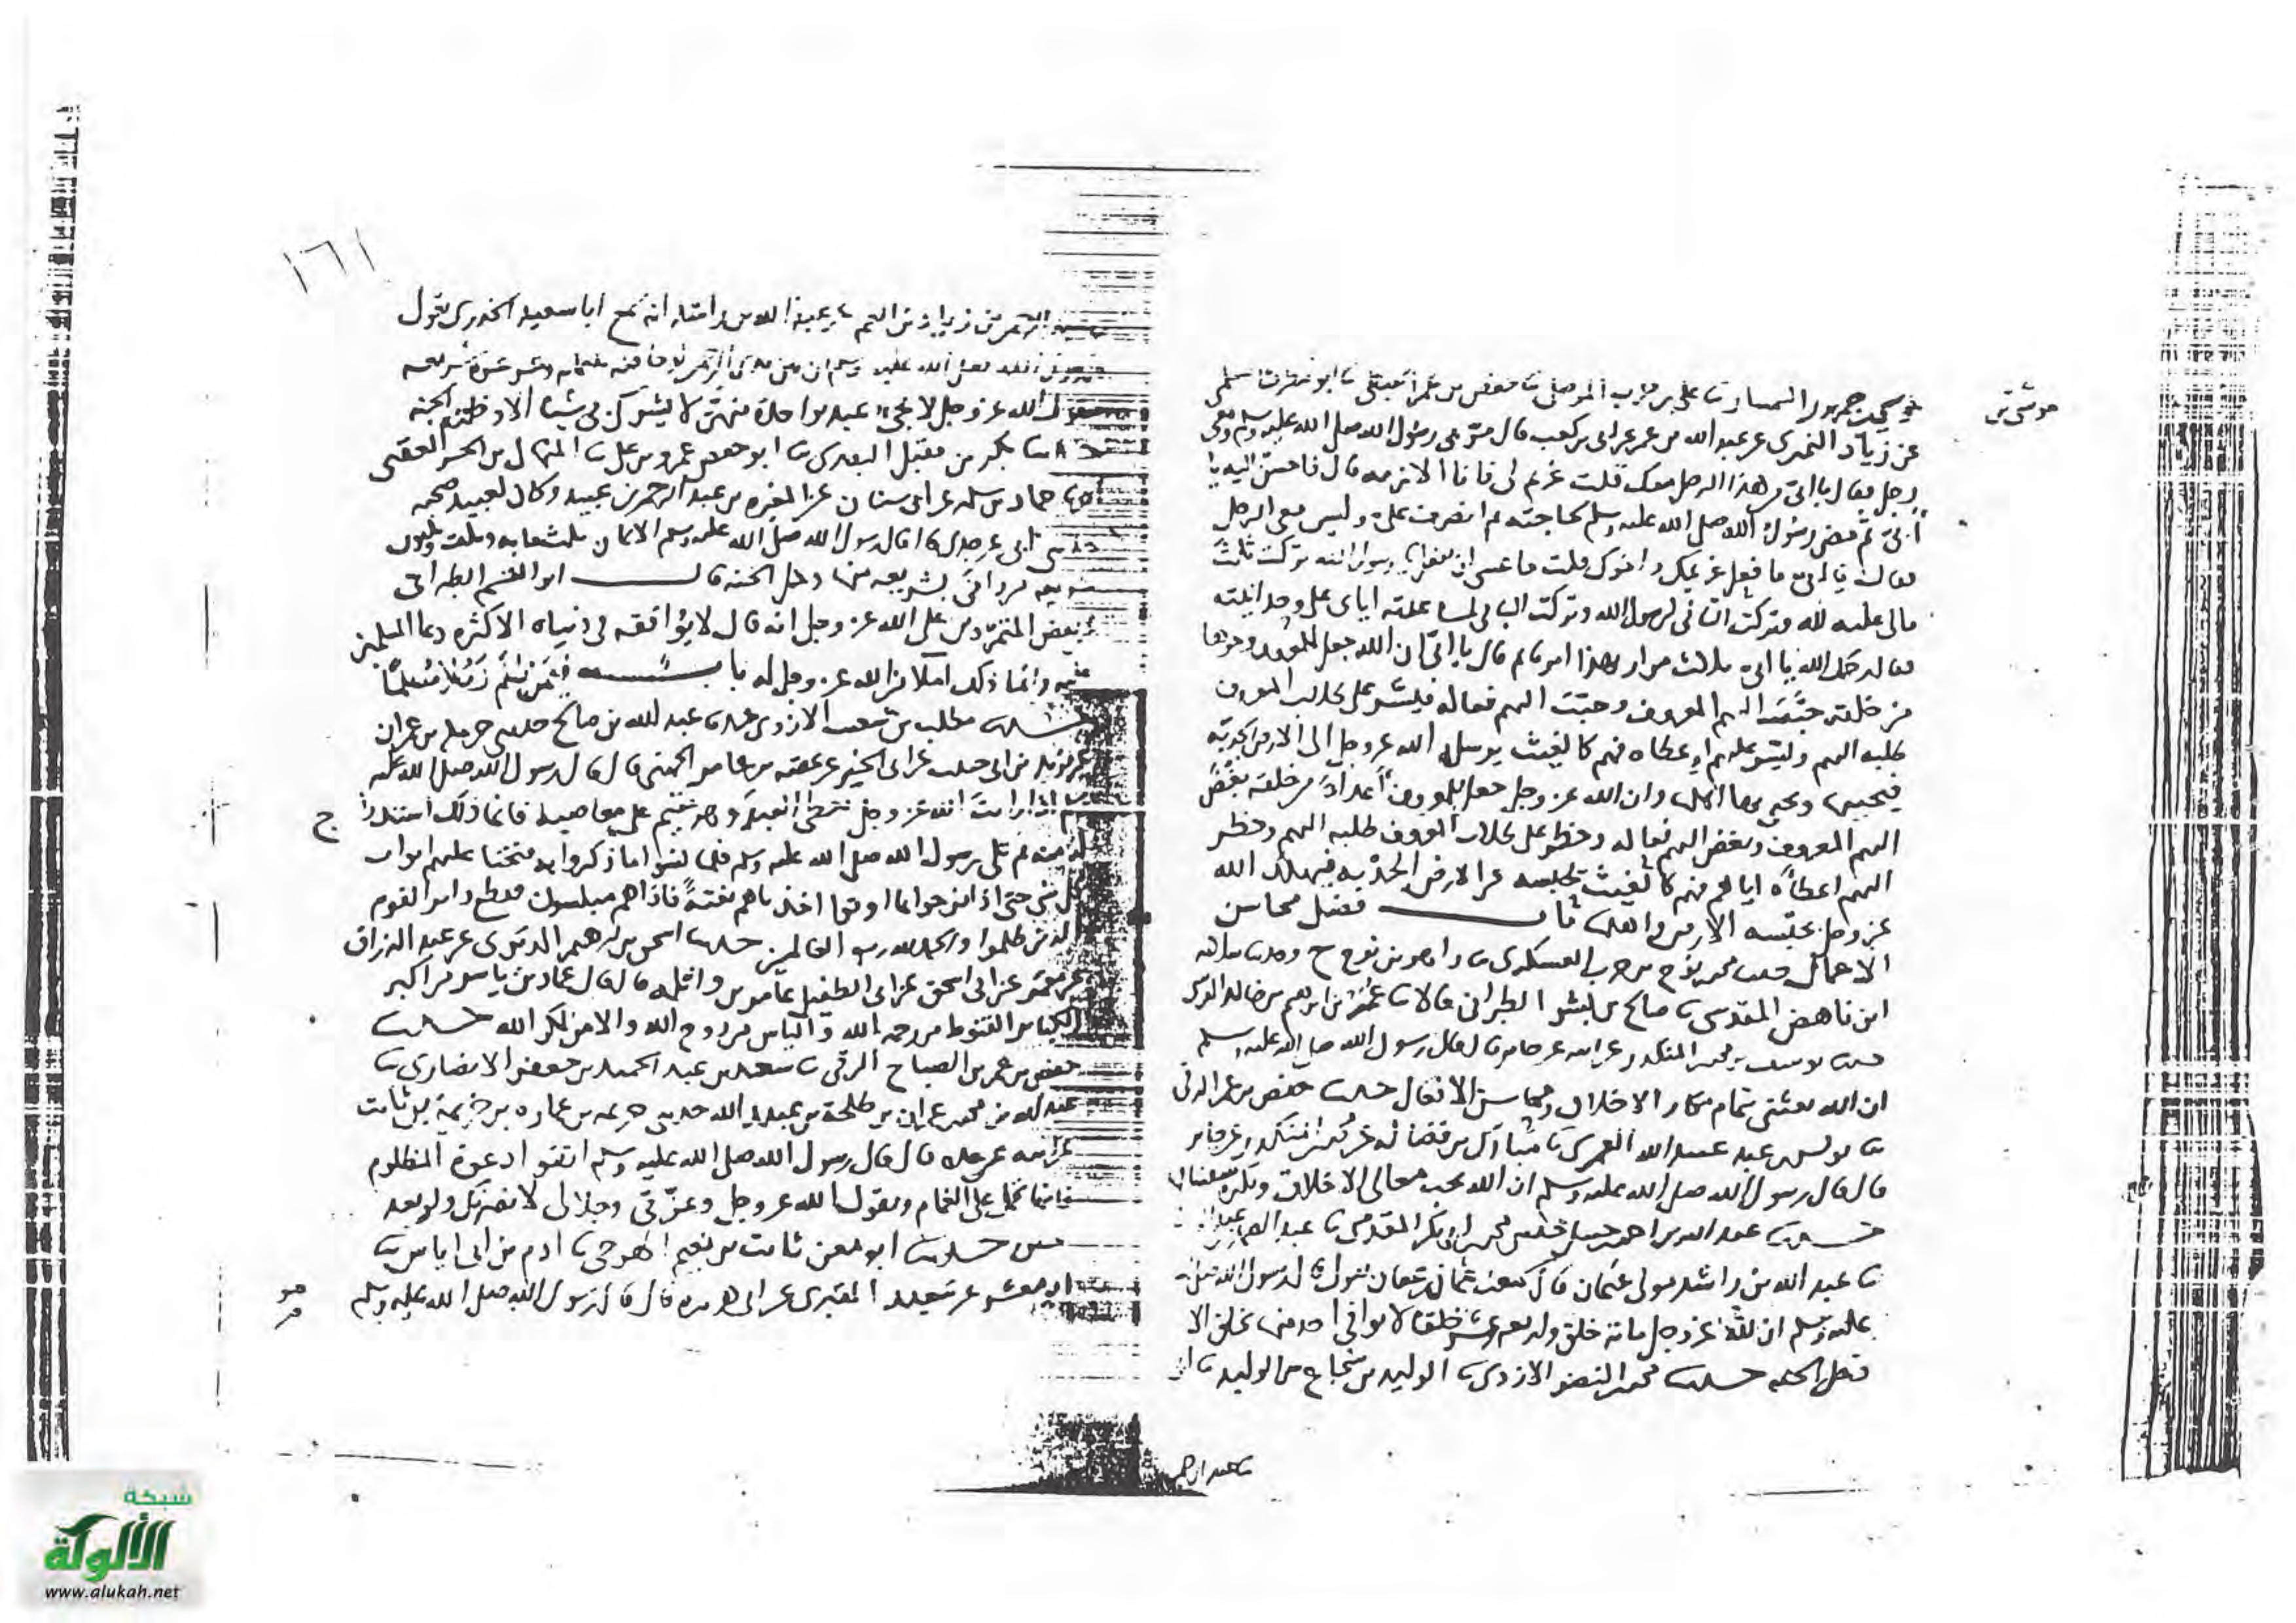 موسى بن جمهور السمسار ثنا على بن حرب الموصلى ثنا حفص بن عمر ثنا
عن زياد النميرى عن عبد الله بن عمر عن ابى بن كعب قال مر بى رسول الله صلى الله عليه وسلم ومعى
رجل فقال يا ابى من هذا الرجل معك قلت غريم لى فانا الازمه قال فاحسن اليه يا
ابى ثم مضى رسول الله صلى الله عليه وسلم لحاجته ثم انصرف على وليس معى الرجل
فقال يا ابى ما فعل غريمك واخوك قلت وما عسى ان يفعل يا رسول الله تركت ثلث
مالى عليه لله وتركت الثانى لرسول الله وتركت الباقى لمساعدته اياى على وحدانيته
فقال رحمك الله يا ابى ثلاث مرار بهذا امرنا ثم قال يا ابى ان الله جعل للمعروف وجوها
من خلقه حبب اليهم المعروف وحبب اليهم فعاله فيسر على طلاب المعروف
طلبه اليهم ويسر عليهم اعطاه فهم كالغيث يرسله الله عز وجل الى الارض الجدبة
فيحييها ويحيى بها اهلها وان الله عز وجل جعل للمعروف أعداء من خلقه بغض
اليهم المعروف وبغض اليهم فعاله وحظر على طلاب المعروف طلبه اليهم وحظر
اليهم اعطاه اياهم فهم كالغيث يحبسه عن الارض الجدبة فيهلك الله
عز وجل بحبسه الارض واهلها باب فضل محاسن
الافعال حدثنا محمد بن نوح بن حرب العسكرى ثنا وهب
ابن ناهض المقدسى ثنا صالح بن بشر الطبرانى قالا ثنا عمر بن ابرهيم بن خالد
حدثنا يوسف بن محمد المنكدر عن ابيه عن جابر قال قال رسول الله صلى الله عليه وسلم
ان الله بعثنى بتمام مكارم الاخلاق ومحاسن الافعال حدثنا حفص بن عمر الرقى
ثنا عبيد الله العميرى ثنا مبارك بن فضاله عن محمد المنكدر عن جابر
قال قال رسول الله صلى الله عليه وسلم ان الله يحب معالى الاخلاق ويكره سفسافها
حدثنا عبد الله بن احمد بن حنبل حدثنى محمد بن ابى بكر المقدمى ثنا عبد الواحد
ثنا عبد الله بن راشد مولى عثمان قال سمعت عثمان بن عفان يقول قال رسول الله صلى الله
عليه وسلم ان لله عز وجل مائة خلق وسبعة عشر خلقا لا يوافى احد منها بخلق الا
دخل الجنه حدثنا محمد النضر الازدى ثنا الوليد بن شجاع بن الوليد ثنا
ثنا عبد الرحمن
١٦١
عبد الرحمن بن زياد بن انعم عن عبد الله بن راشد انه سمع ابا سعيد الخدرى يقول
قال رسول الله صلى الله عليه وسلم ان بين يدى الرحمن لوحا فيه ثلثمايه وخمس عشرة شريعه
يقول الله عز وجل لا يجىء عبد بواحدة منهن لا يشرك بى شيئا الا ادخلته الجنه
حدثنا بكر بن مقبل البصرى ثنا ابو حفص عمرو بن على ثنا المنهال بن بحر العقيلى
ثنا حماد بن سلمه عن ابى سنان عن المغيره بن عبد الرحمن بن عبيد وكان لعبيد صحبه
حدثنى ابى عن جدى قال قال رسول الله صلى الله عليه وسلم الايمان ثلثمايه وثلث وثلثون
شريعه من وافى بشريعه منها دخل الجنه قال ابو القسم الطبرانى
عن بعض المتمردين على الله عز وجل انه قال لا يوافقه فى دنياه الا كثره دعا المسلمين
عليه وانما ذلك املا من الله عز وجل له باب فيمن ظلم رجلا مسلما
حدثنا مطلب بن شعيب الازدى ثنا عبد الله بن صالح حدثنى حرمله بن عمران
عن يزيد بن ابى حبيب عن ابى الخير عن عقبه بن عامر الجهنى قال قال رسول الله صلى الله عليه
وسلم اذا رايت الله عز وجل يعطى العبد وهو مقيم على معاصيه فانما ذلك استدراج
له منه ثم تلى رسول الله صلى الله عليه وسلم فلما نسوا ما ذكروا به فتحنا عليهم ابواب
كل شى حتى اذا فرحوا بما اوتوا اخذناهم بغتة فاذا هم مبلسون فقطع دابر القوم
الذين ظلموا والحمد لله رب العالمين حدثنا اسحق بن ابرهيم الدبرى عن عبد الرزاق
عن معمر عن ابى اسحق عن ابى الطفيل عامر بن واثله قال قال عمار بن ياسر من اكبر
الكبائر القنوط من رحمة الله والياس من روح الله والامن لمكر الله حدثنا
حفص بن عمر بن الصباح الرقى ثنا سعد بن عبد الحميد بن جعفر الانصارى ثنا
عبد الله بن محمد بن عمران بن طلحة بن عبيد الله حدثنى خزيمه بن محمد بن عماره بن خزيمة بن ثابت
عن ابيه عن جده قال قال رسول الله صلى الله عليه وسلم اتقوا دعوة المظلوم
فانها تحمل على الغمام ويقول الله عز وجل وعزتى وجلالى لانصرنك ولو بعد
حين حدثنا ابو معن ثابت بن نعيم الهوجى ثنا ادم بن ابى اياس ثنا
ابو معشر عن سعيد المقبرى عن ابى هريره قال قال رسول الله صلى الله عليه وسلم
شبكة
الألوكة
www.alukah.net